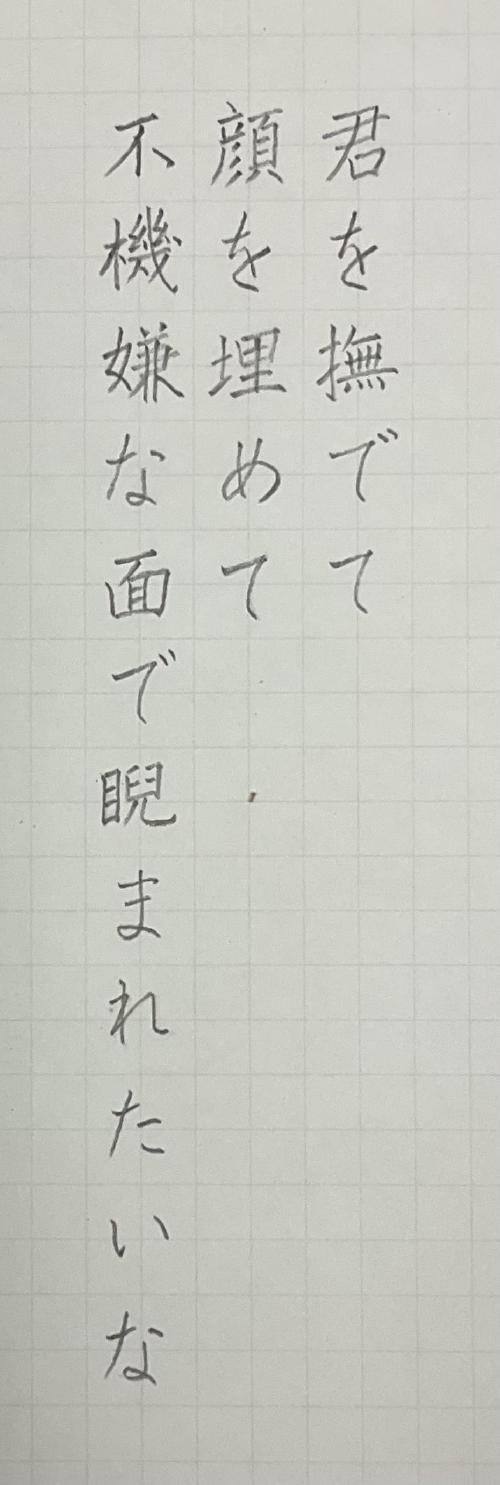 君を撫でて
顔を埋めて
不機嫌な面で睨まれたいな